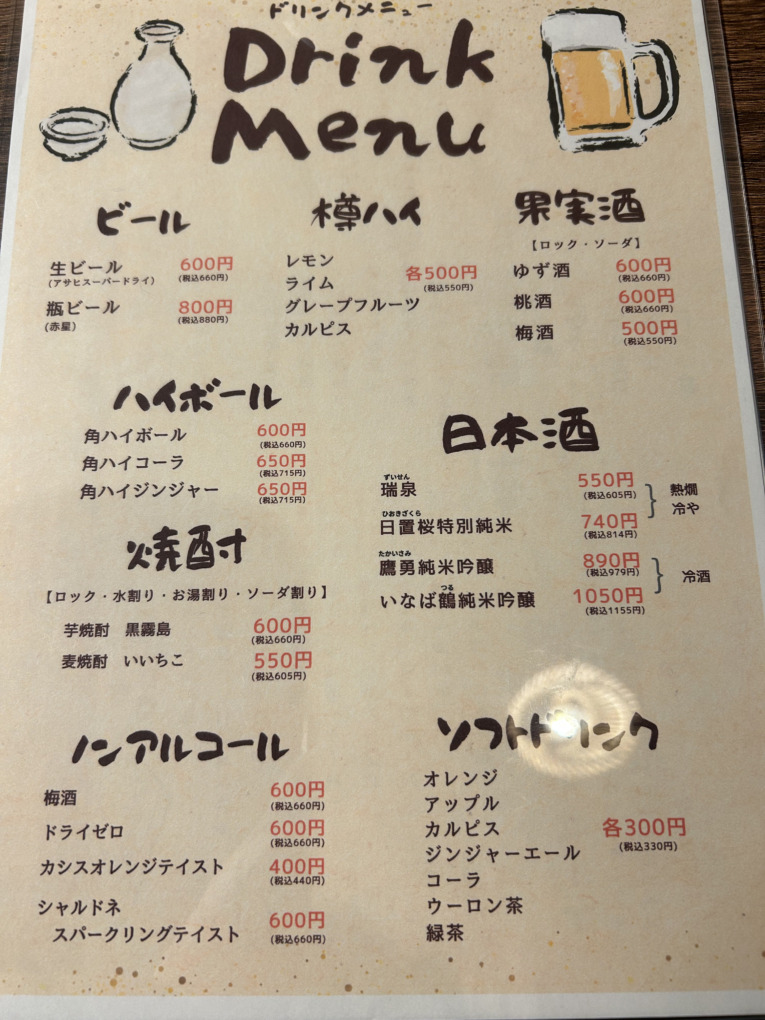 ドリンクメニュー
Drink
Menu
ビール
生ビール 600円
(アサヒスーパードライ) (税込660円)
瓶ビール 800円
(赤星) (税込880円)
樽ハイ
レモン
ライム
グレープフルーツ
カルピス
各500円
(税込550円)
果実酒
【ロック・ソーダ】
ゆず酒 600円
(税込660円)
桃酒 600円
(税込660円)
梅酒 500円
(税込550円)
ハイボール
角ハイボール 600円
(税込660円)
角ハイコーラ 650円
(税込715円)
角ハイジンジャー 650円
(税込715円)
日本酒
ずいせん
瑞泉 550円
(税込605円)
ひおきざくら
日置桜特別純米 740円
(税込814円)
熱燗
冷や
たかいさみ
鷹勇純米吟醸 890円
(税込979円)
つる
いなば鶴純米吟醸 1050円
(税込1155円)
冷酒
焼酎
【ロック・水割り・お湯割り・ソーダ割り】
芋焼酎 黒霧島 600円
(税込660円)
麦焼酎 いいちこ 550円
(税込605円)
ノンアルコール
梅酒 600円
(税込660円)
ドライゼロ 600円
(税込660円)
カシスオレンジテイスト 400円
(税込440円)
シャルドネ
スパークリングテイスト 600円
(税込660円)
ソフトドリンク
オレンジ
アップル
カルピス
ジンジャーエール
コーラ
ウーロン茶
緑茶
各300円
(税込330円)